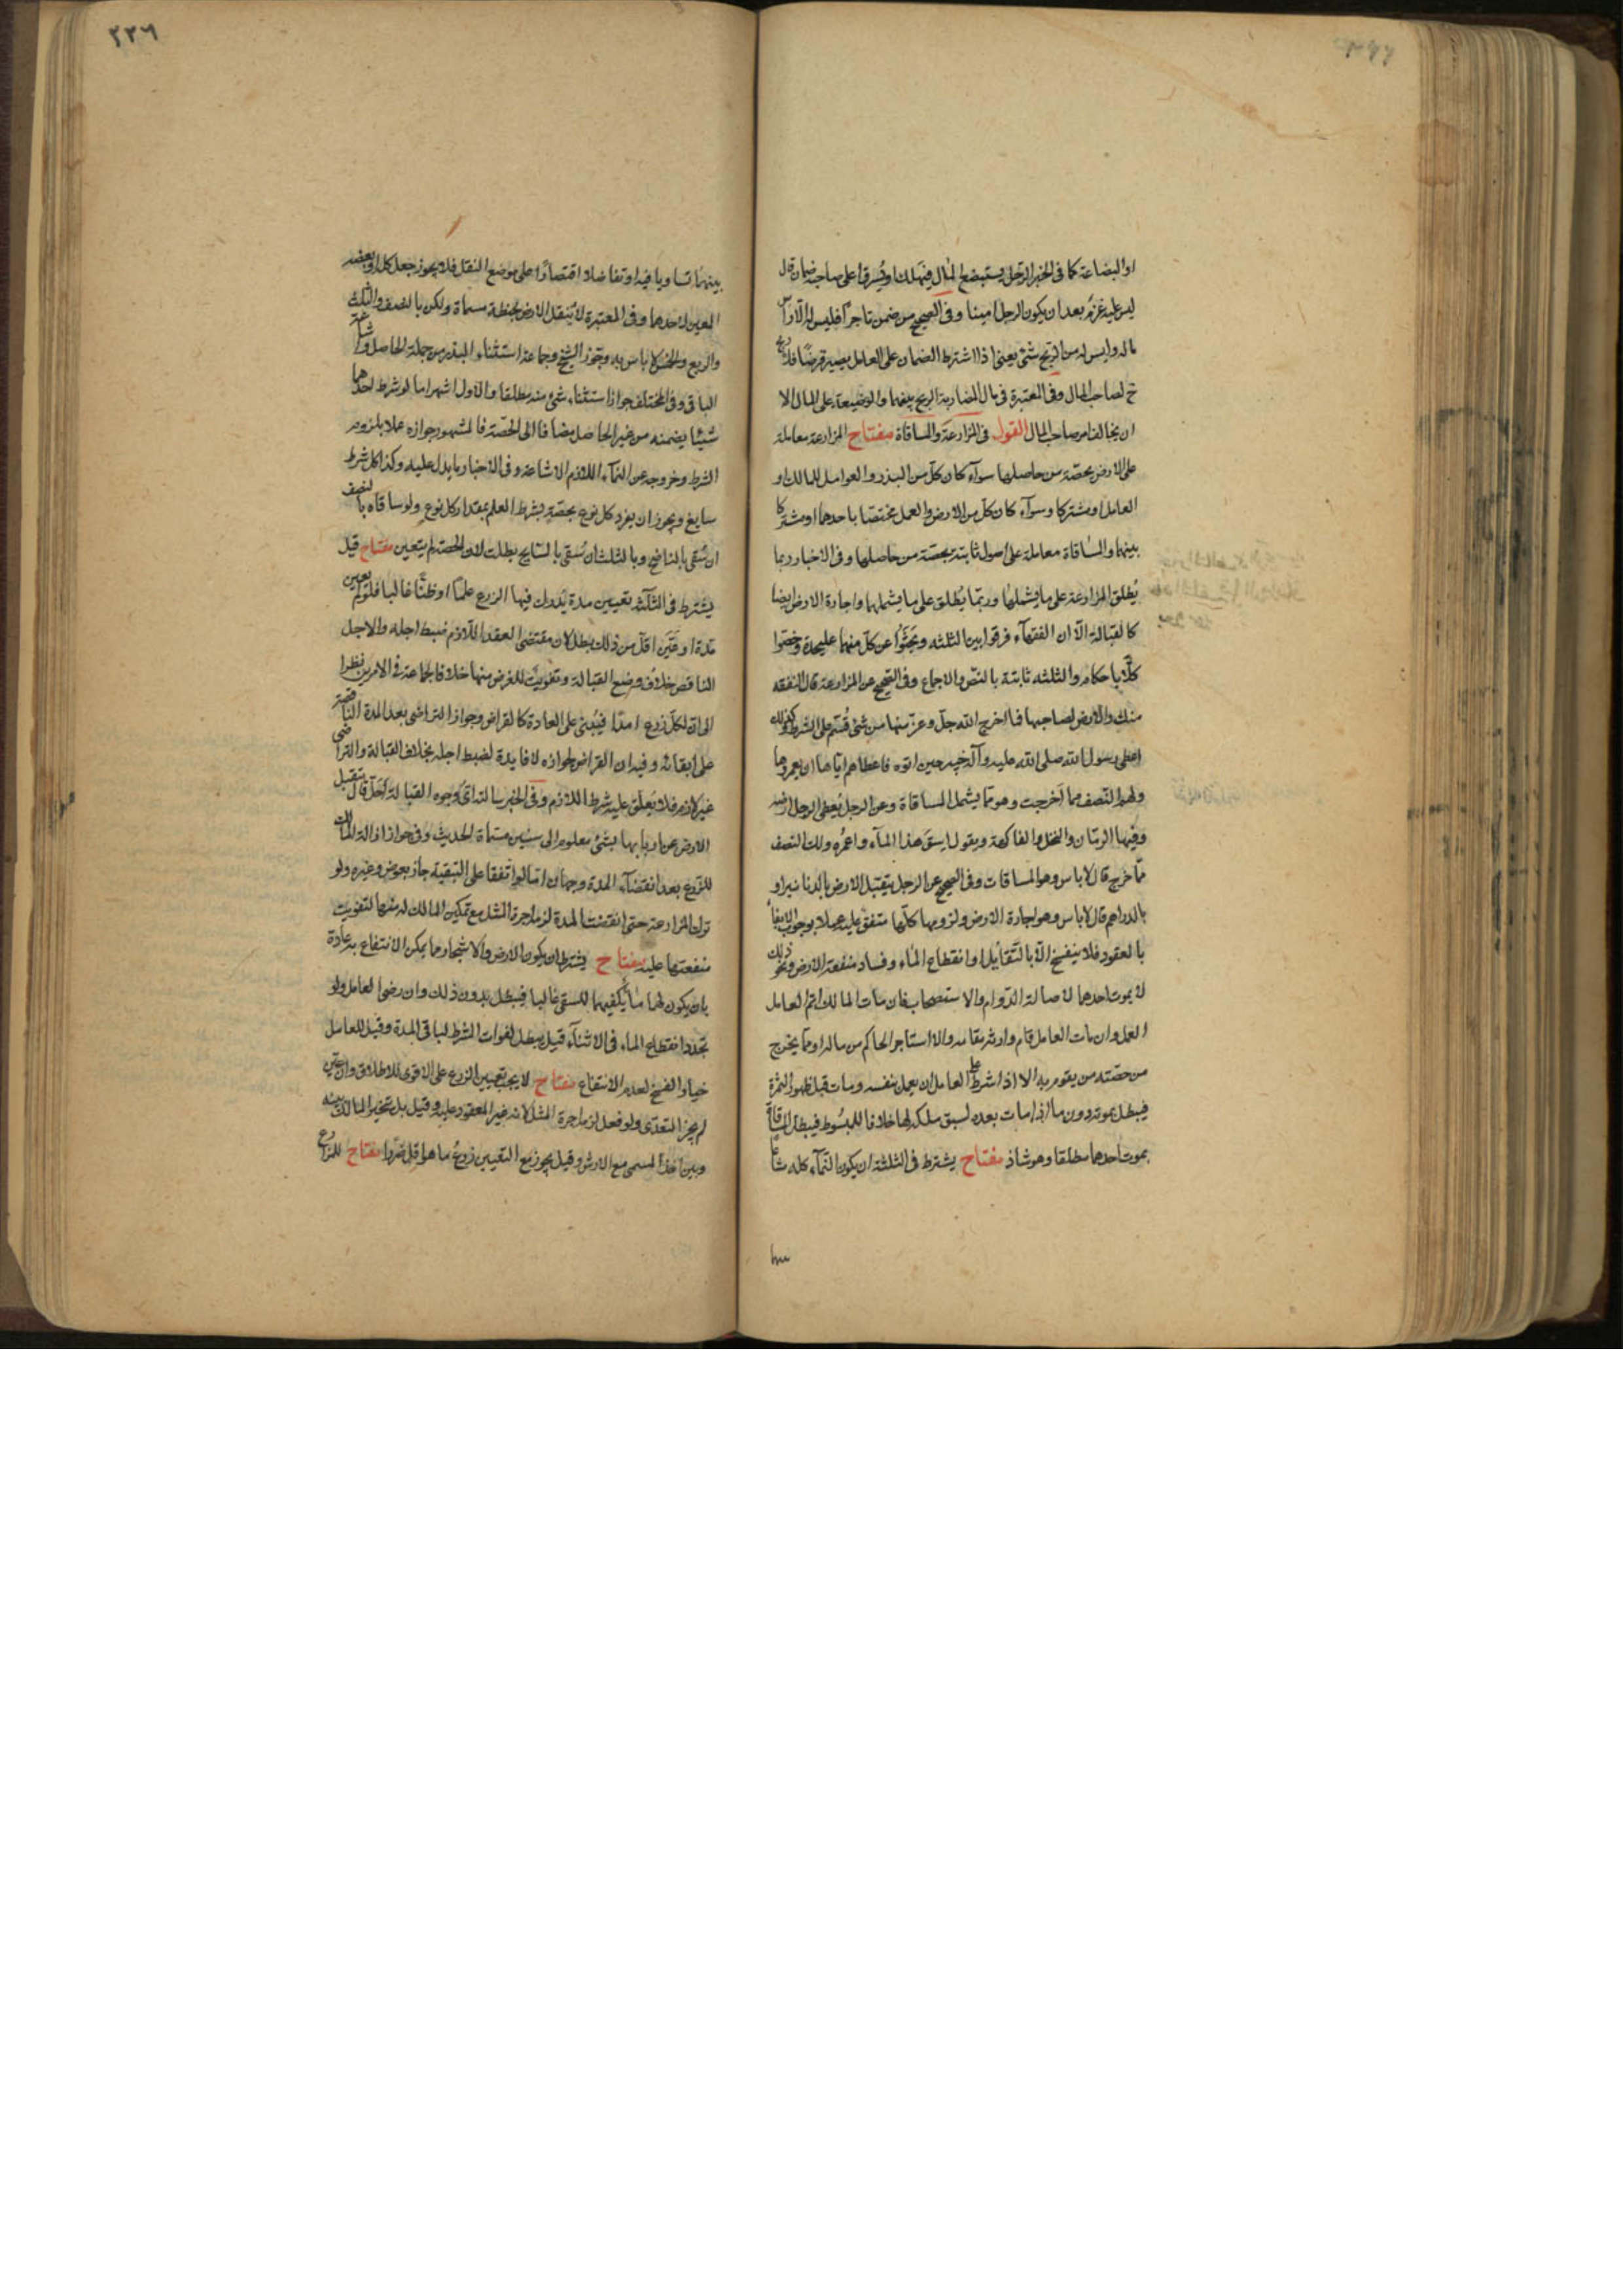 او البضاعة كما فى الخبر الرجل يستبضع المال فيهلك او يسرق اعلى صاحبه ضمان قال
ليس عليه غرم بعد ان يكون الرجل امينا وفى الصحيح من ضمن تاجرا فليس له الا راس
ماله وليس له من الربح شئ يعنى اذا اشترط الضمان على العامل يصير قرضا فلا ربح
ح لصاحب المال وفى المعتبرة فى مال المضاربة الربح بينهما والوضيعة على المال الا
ان يخالف امر صاحب المال القول فى المزارعة والمساقاة مفتاح المزارعة معاملة
على الارض بحصة من حاصلها سوآء كان كل من البذر والعوامل للمالك او
العامل او مشتركا وسوآء كان كل من الارض والعمل مختصا باحدهما او مشتركا
بينهما والمساقاة معاملة على اصول ثابتة بحصة من حاصلها وفى الاخبار ربما
يُطلق المزارعة على ما يشملها وربما يُطلق على ما يشملهما واجارة الارض ايضا
كالقبالة الا ان الفقهآء فرقوا بين الثلثه وبحثوا عن كل منهما عليحدة وخصوا
كلا باحكام والثلثه ثابتة بالنص والاجماع وفى الصحيح عن المزارعة قال النفقه
منك والارض لصاحبها فما اخرج الله جل وعز منها من شئ قُسم على الشرط وكذلك
اعطى رسول الله صلى الله عليه وآله خيبر حين اتوه فاعطاهم اياها ان يعمروها
ولهم النصف مما اخرجت وهو مما يشمل المساقاة وعن الرجل يُعطى الرجل ارضه
وفيها الرمان والنخل والفاكهة ويقول اسق هذا المآء واعمُره ولك النصف
مما خرج قال لا باس وهو المساقات وفى الصحيح عن الرجل يتقبل الارض بالدنانير او
بالدراهم قال لا باس وهو اجارة الارض ولزومها كلها متفق عليه عملا بوجوب الايفآء
بالعقود فلا ينفسخ الا بالتقايل او انقطاع المآء وفساد منفعة الارض ونحو ذلك
لا بموت احدهما لاصالة الدوام والاستصحاب فان مات المالك اتم العامل
العمل وان مات العامل قام وارثه مقامه والا استاجر الحاكم من ماله او مما يخرج
من حصته من يقوم به الا اذا شرط على العامل ان يعمل بنفسه ومات قبل ظهور الثمرة
فيبطل بموته دون ما اذا مات بعده لسبق ملكه لها خلافا للمبسوط فيبطل المساقاة
بموت احدهما مطلقا وهو شاذ مفتاح يشترط فى الثلثة ان يكون النمآء كله مشاعا
٢٢٦
بينهما تساويا فيه او تفاضلا اقتصارا على موضع النقل فلا يجوز جعل كله او بعضه
المعين لاحدهما وفى المعتبرة لا يتقبل الارض بحنطة مسماة ولكن بالنصف والثلث
والربع والخمس لا باس به وجوز الشيخ وجماعة استثنآء البذر من جملة الحاصل واشاعة
الباقى وفى المختلف جواز استثنآء شئ منه مطلقا والاول اشهر اما لو شرط احدهما
شيئا يضمنه من غير الحاصل مضافا الى الحصة فالمشهور جوازه عملا بلزوم
الشرط وخروجه عن النمآء اللازم الاشاعة وفى الاخبار ما يدل عليه وكذا كل شرط
سايغ ويجوز ان يفرد كل نوع بحصة بشرط العلم بمقدار كل نوع ولو ساقاه بالنصف
ان سُقى بالناضح وبالثلث ان سُقى بالسايح بطلت لان الحصة لم يتعين مفتاح قيل
يشترط فى الثلثه تعيين مدة يُدرك فيها الزرع علما او ظنا غالبا فلو لم يعين
مدة او عين اقل من ذلك بطل لان مقتضى العقد اللازم ضبط اجله والاجل
الناقص خلاف وضع القبالة وتفويت للغرض منها خلافا لجماعة فى الامرين نظرا
الى ان لكل زرع امدا فيُبنى على العادة كالقراض وجواز التراضى بعد المدة الناقصة
على ابقائه وفيه ان القراض لجوازه لا فايدة لضبط اجله بخلاف القبالة والتراضى
غير لازم فلا يُعلق عليه شرط اللازم وفى الخبر سالته اىُّ وجوه القبالة احل قال يتقبل
الارض من اربابها بشئ معلوم الى سنين مسماة الحديث وفى جواز ازالة المالك
للزرع بعد انقضآء المدة وجهان اما لو اتفقا على التبقية جاز بعوض وغيره ولو
ترك المزارعة حتى انقضت المدة لزمه اجرة المثل مع تمكين المالك له منها لتفويت
منفعتها عليه مفتاح يشترط ان يكون الارض والاشجار مما يمكن الانتفاع به عادة
بان يكون لهما ما يكفيهما للسقى غالبا فيبطل بدون ذلك وان رضى العامل ولو
تجدد انقطاع المآء فى الاثنآء قيل يبطل لفوات الشرط لباقى المدة وقيل للعامل
خيار الفسخ لعدم الانتفاع مفتاح لا يجب تعيين الزرع على الاقوى للاطلاق وان عين
لم يجز التعدى ولو فعل لزمه اجرة المثل لانه غير المعقود عليه وقيل بل تخير المالك بينه
وبين اخذ المسمى مع الارش وقيل يجوز مع التعيين زرعُ ما هو اقل ضررا مفتاح للمزارع